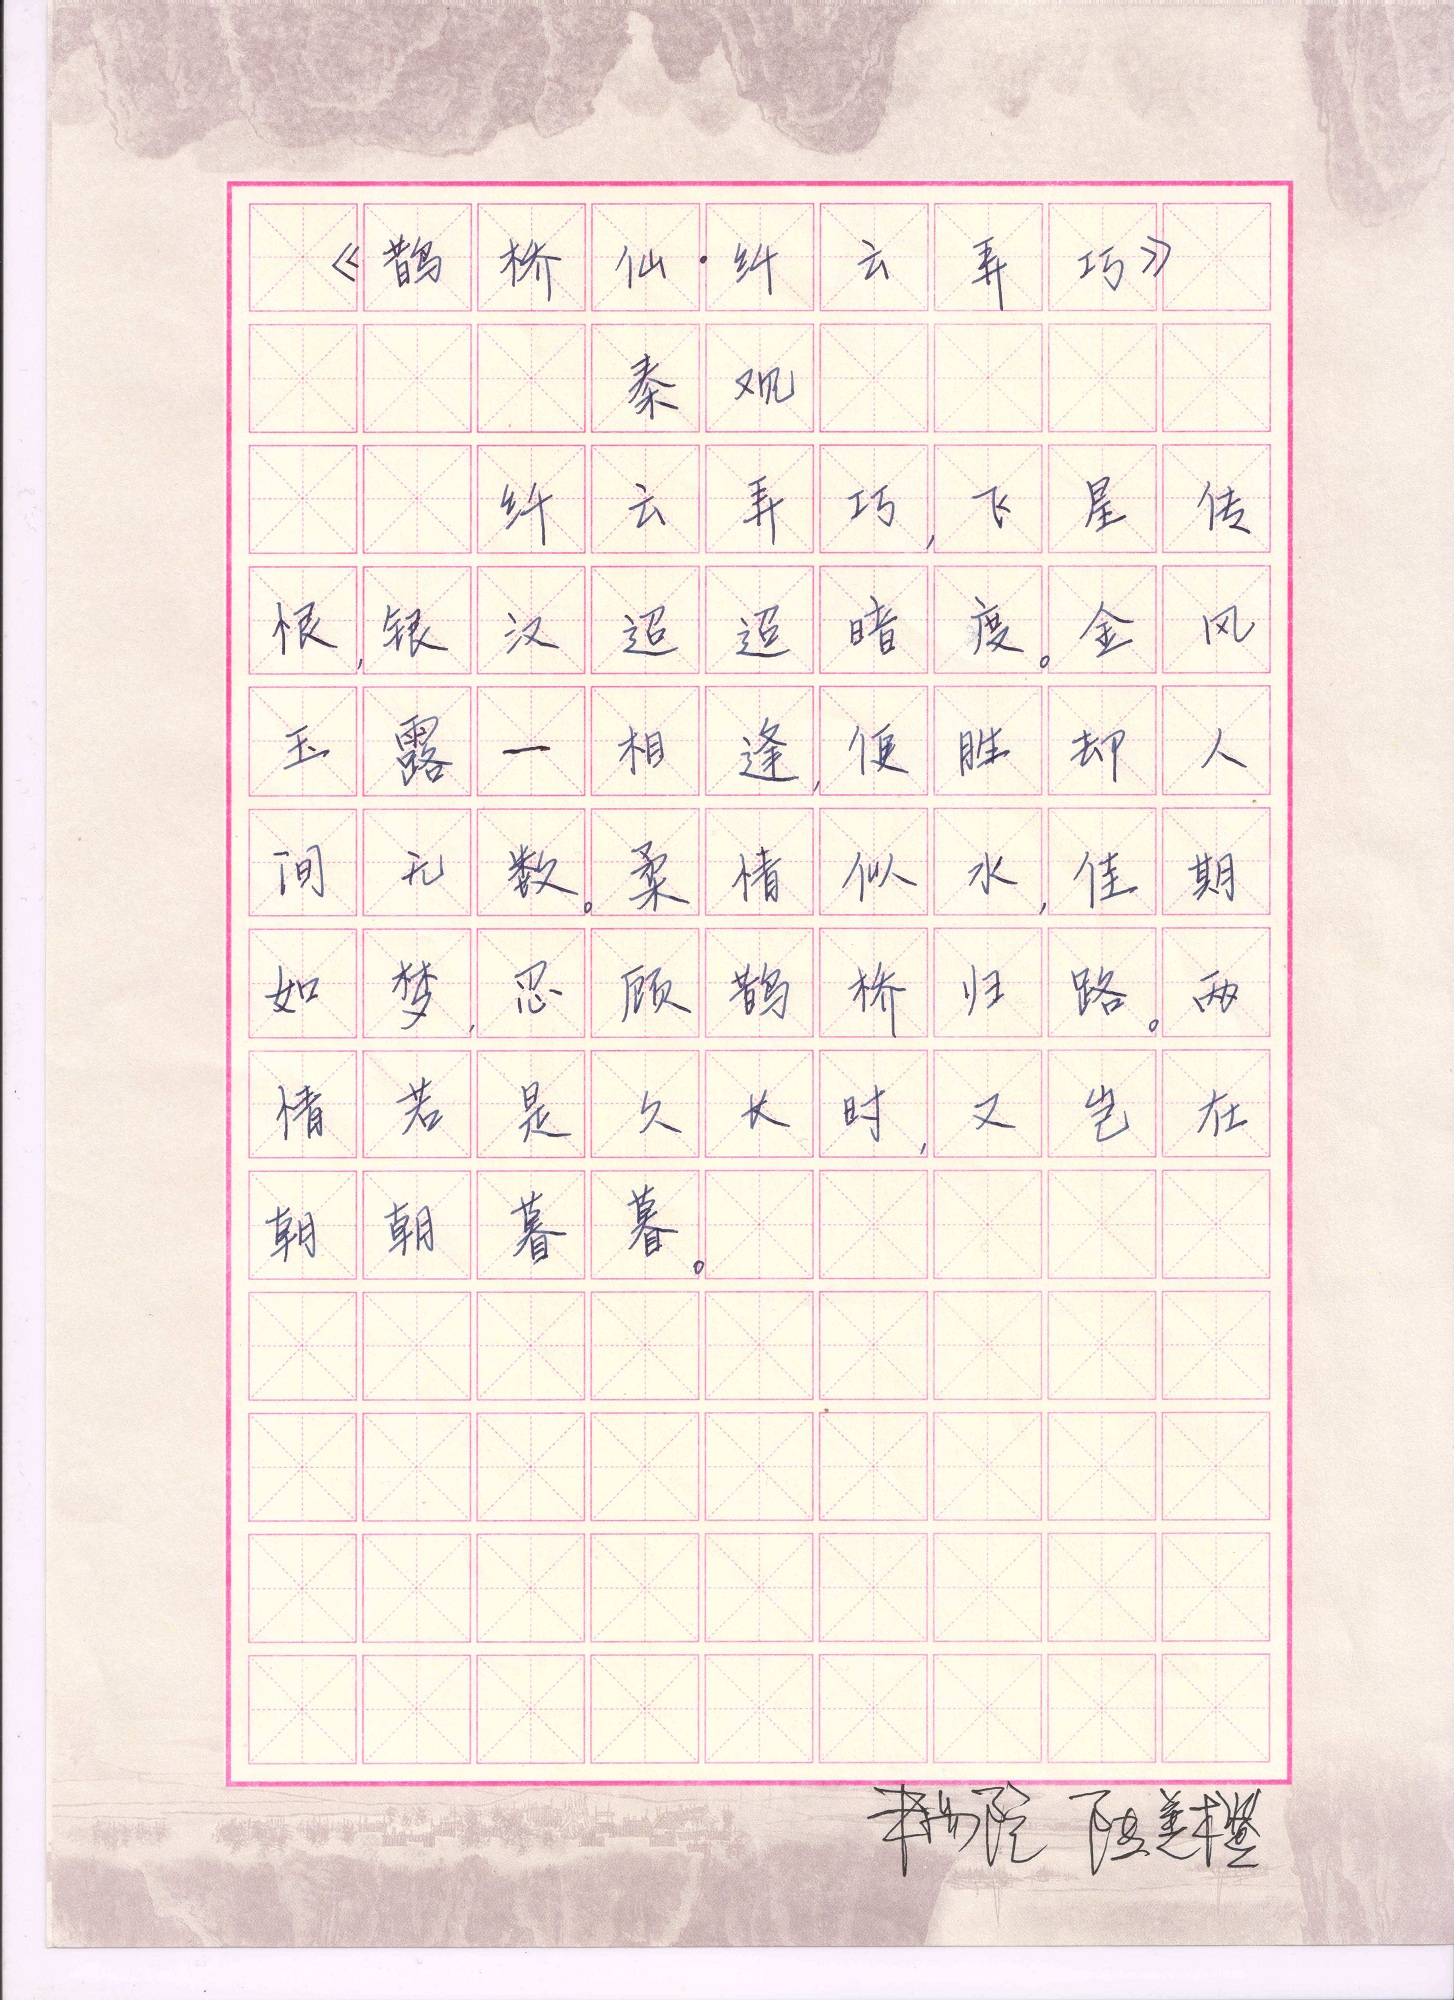 《鹊桥仙·纤云弄巧》
秦观
纤云弄巧,飞星传
恨,银汉迢迢暗度。金风
玉露一相逢,便胜却人
间无数。柔情似水,佳期
如梦,忍顾鹊桥归路。两
情若是久长时,又岂在
朝朝暮暮。